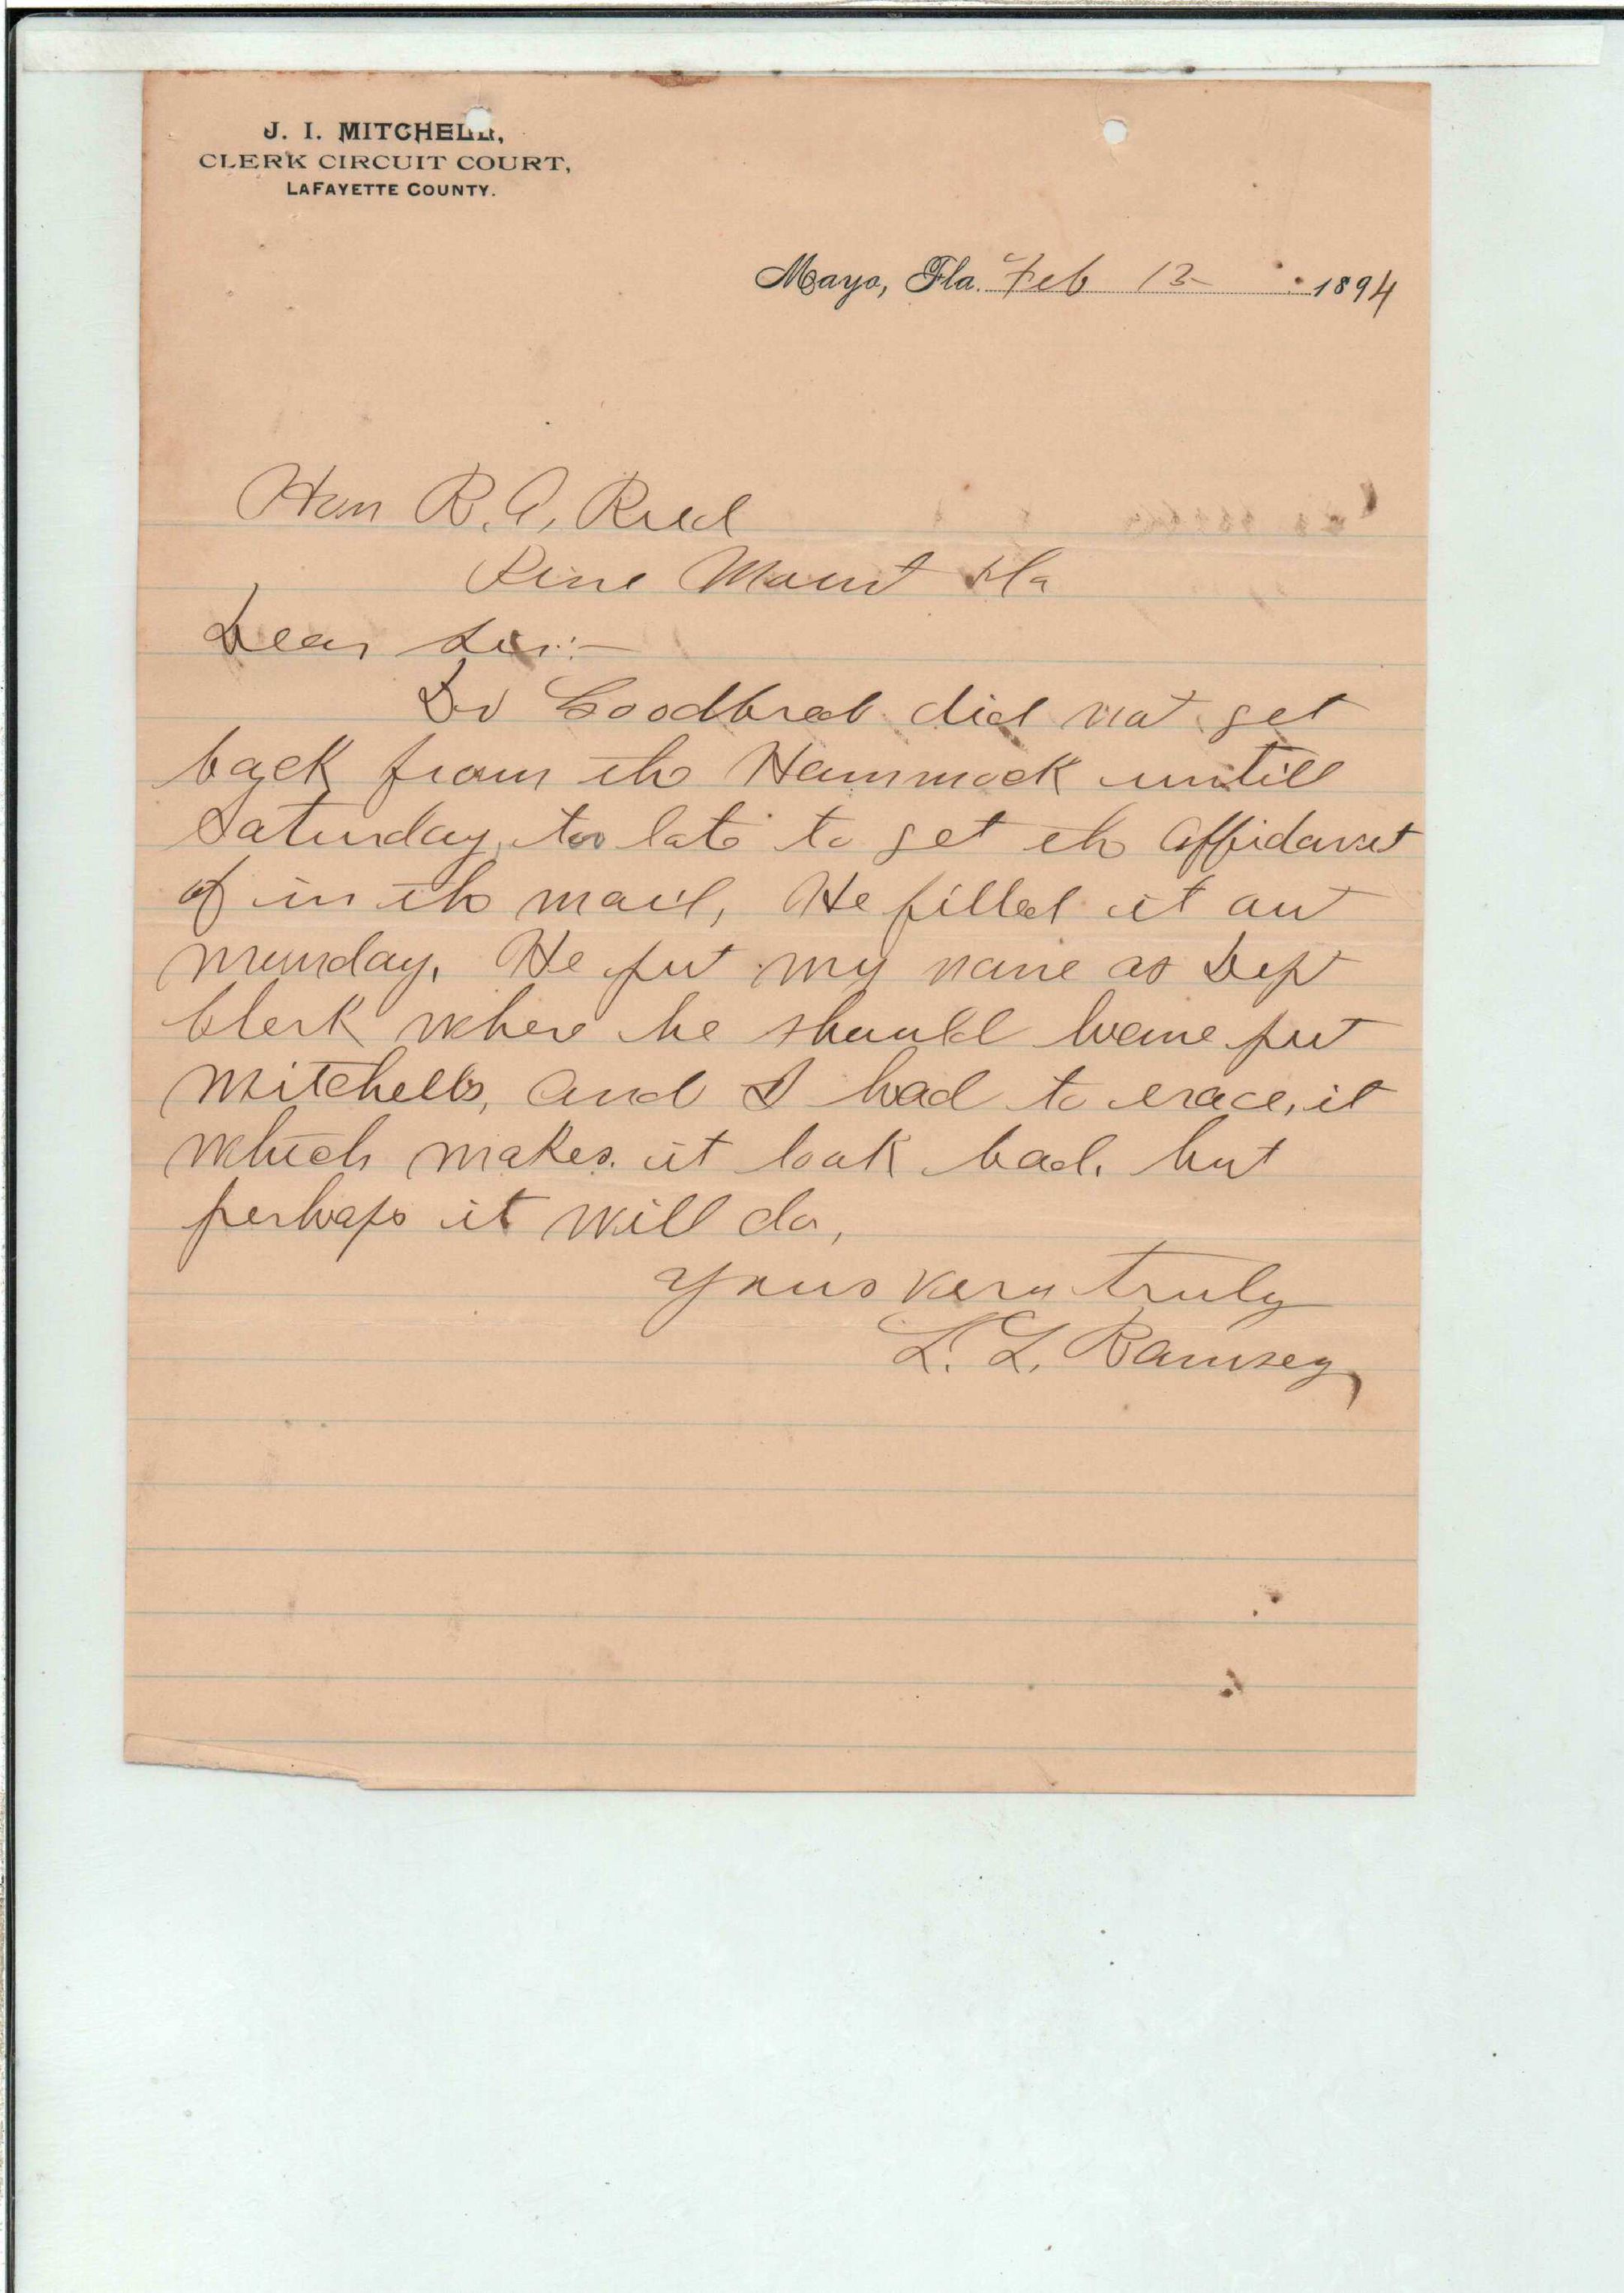 J. I. MITCHELL,
CLERK CIRCUIT COURT,
LAFAYETTE COUNTY.
Mayo, Fla. Feb 13 1894
Hon R. A. Reid
Pine Mount Fla
Dear Sir:-
Dr Goodbred did not get
back from the Hammock untill
Saturday, too late to get the affidavit
of in the mail, He filled it out
Munday. He put my name as Dept
Clerk where he should have put
Mitchells, and I had to erace, it
which makes it look bad. but
perhaps it will do,
Yours Very truly
L. L. Ramsey